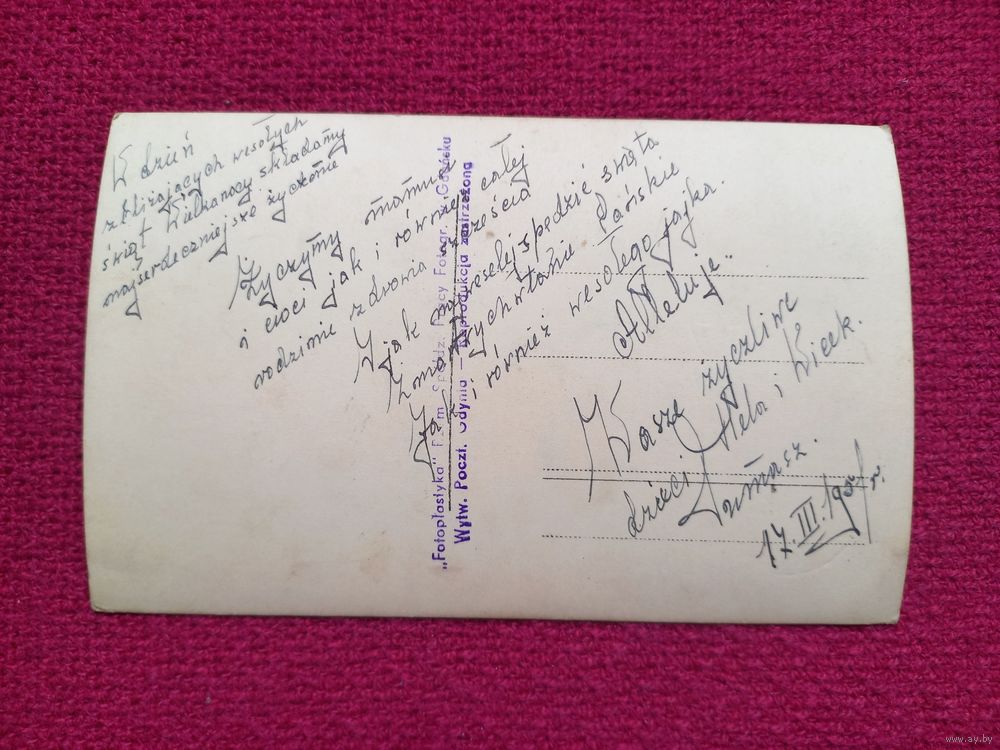 W dzień
zbliżających wesołych
świąt Wielkanocy składamy
najserdeczniejsze życzenie
Życzymy mamusi
i cioci jak i również całej
rodzinie zdrowia szczęścia
jak najweselej spędzić święta
Zmartwychwstanie Pańskie
i również wesołego jajka.
Alleluje"
Wasze życzliwe
dzieci Hela i Wicek.
17.III.19 r.
„Fotoplastyka" Pom. Spółdz. Pracy Fotogr. w Gdańsku
Wytw. Poczt. Gdynia — Reprodukcja zastrzeżona
www.ay.by